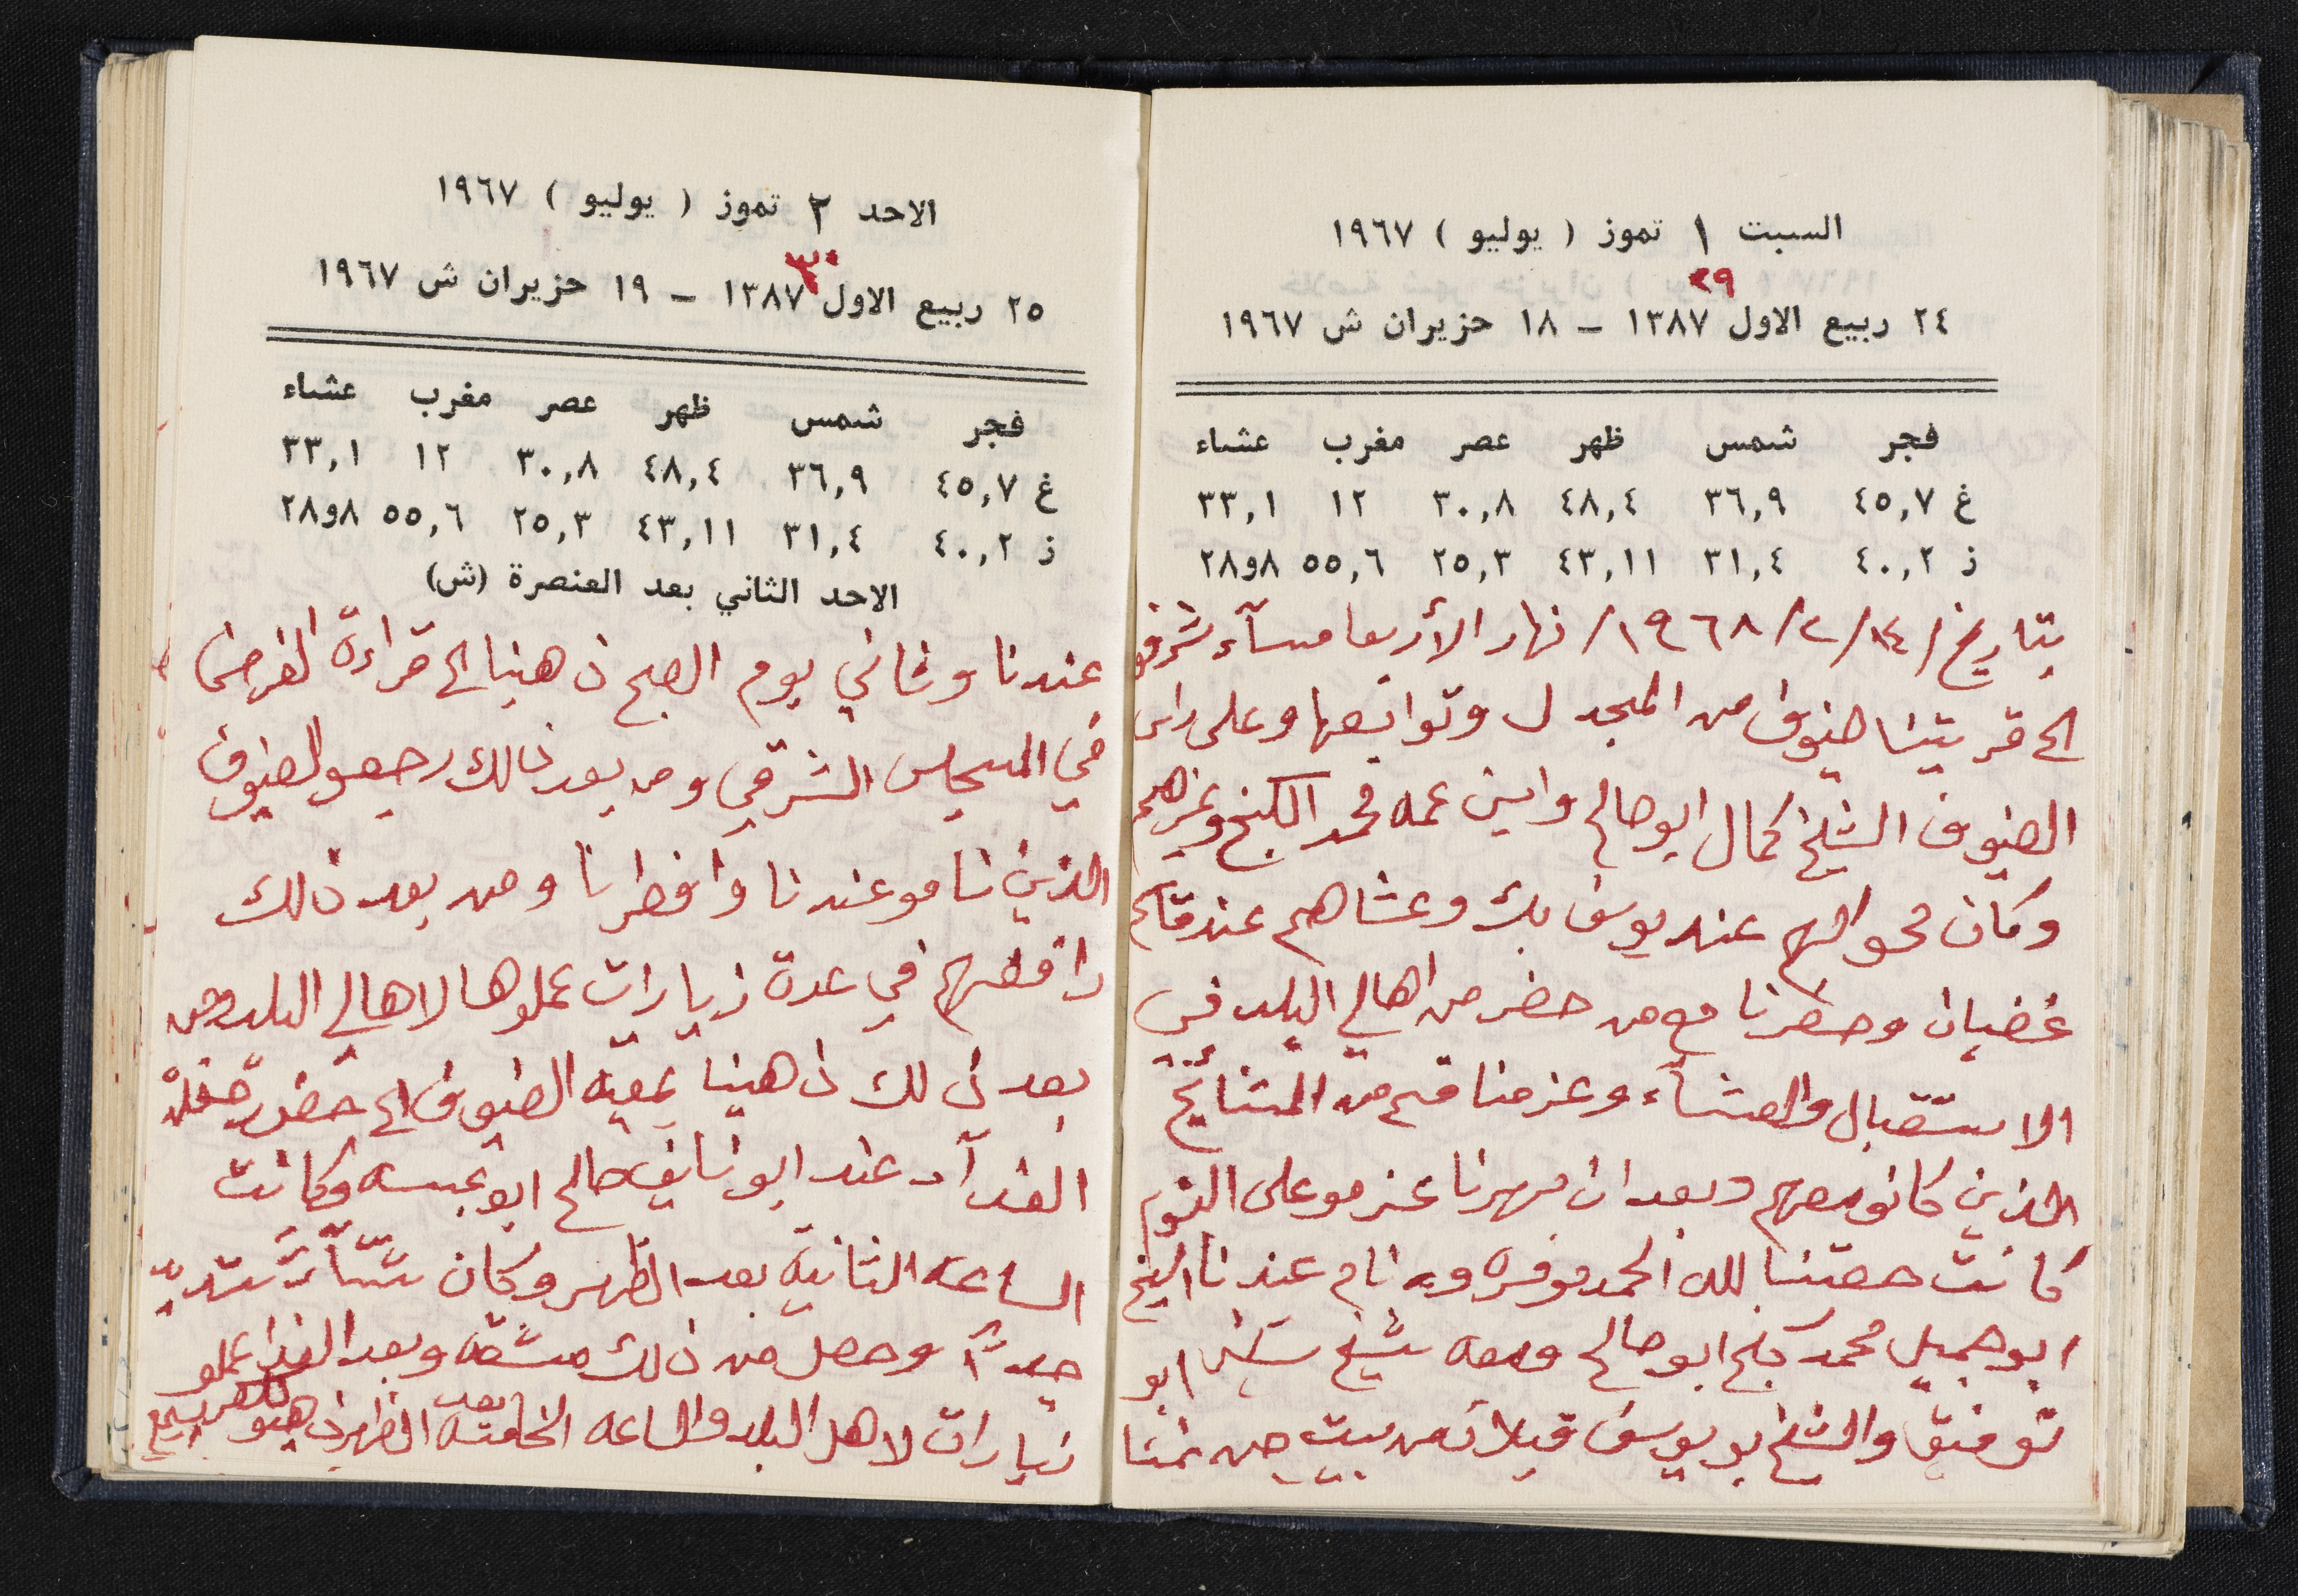 السبت ١ تموز ( يوليو ) ١٩٦٧
٢٩
٢٤ ربيع الاول ١٣٨٧ – ١٨ حزيران ش ١٩٦٧
فجر شمس ظهر عصر مغرب عشاء
غ ٤٥,٧ ٣٦,٩ ٤٨,٤ ٣٠,٨ ١٢ ٣٣,١
ز ٤٠,٢ ٣١,٤ ٤٣,١١ ٢٥,٣ ٥٥,٦ ٨و٢٨
بتاريخ /١٤/٢/١٩٦٨/ نهار الأربعا مسآء
الى قريتنا ضيوف من المجدل وتوابعها وعلى راس
الضيوف الشيخ كمال ابو صالح وابن عمه محمد الكنج وغيرهم
وكان محوالهم عند يوسف بك وعشاهم عند قاسم
غضبان وحضرنا مع من حضر من اهالي البلد في
الاستقبال والعشآء وعزمنا قسم من المشائخ
الذين كانو معهم وبعد ان سهرنا عزمو على النوم
كانت حصتنا لله الحمد موفره ونام عندنا الشيخ
ابو جميل محمد كنج ابو صالح ومعه شيخ ابو
توفيق والشيخ بو يوسف من بيت جن نمنا
الاحد ٢ تموز ( يوليو ) ١٩٦٧
٣٠
٢٥ ربيع الاول ١٣٨٧ – ١٩ حزيران ش ١٩٦٧
فجر شمس ظهر عصر مغرب عشاء
غ ٤٥,٧ ٣٦,٩ ٤٨,٤ ٣٠,٨ ١٢ ٣٣,١
ز ٤٠,٢ ٣١,٤ ٤٣,١١ ٢٥,٣ ٥٥,٦ ٨و٢٨
الاحد الثاني بعد العنصرة (ش)
عندنا وثاني يوم الصبح ذهبنا الى قراءة الفرض
في المجلس الشرقي ومن بعد ذالك رجعو الضيوف
الذين نامو عندنا وافطرنا ومن بعد ذالك
رافقتهم في عدة زيارات عملوها لاهالي البلد ومن
بعد ذلك ذهبنا بمعية الضيوف الى حضور حفلة
الغدآء عند ابو نايف صالح ابو عبسه وكانت
الساعه الثانية بعد الظهر وكان شتآء شديد
جدآً وحصل من ذلك مشقه وبعد الغدا عملو
زيارات لاهل البلد والساعه الخامسه بعد الظهر ذهبو